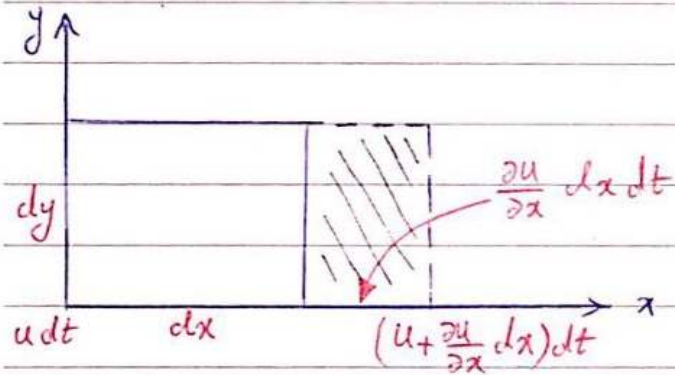 y
∂u/∂x dx dt
dy
x
u dt dx (u + ∂u/∂x dx) dt